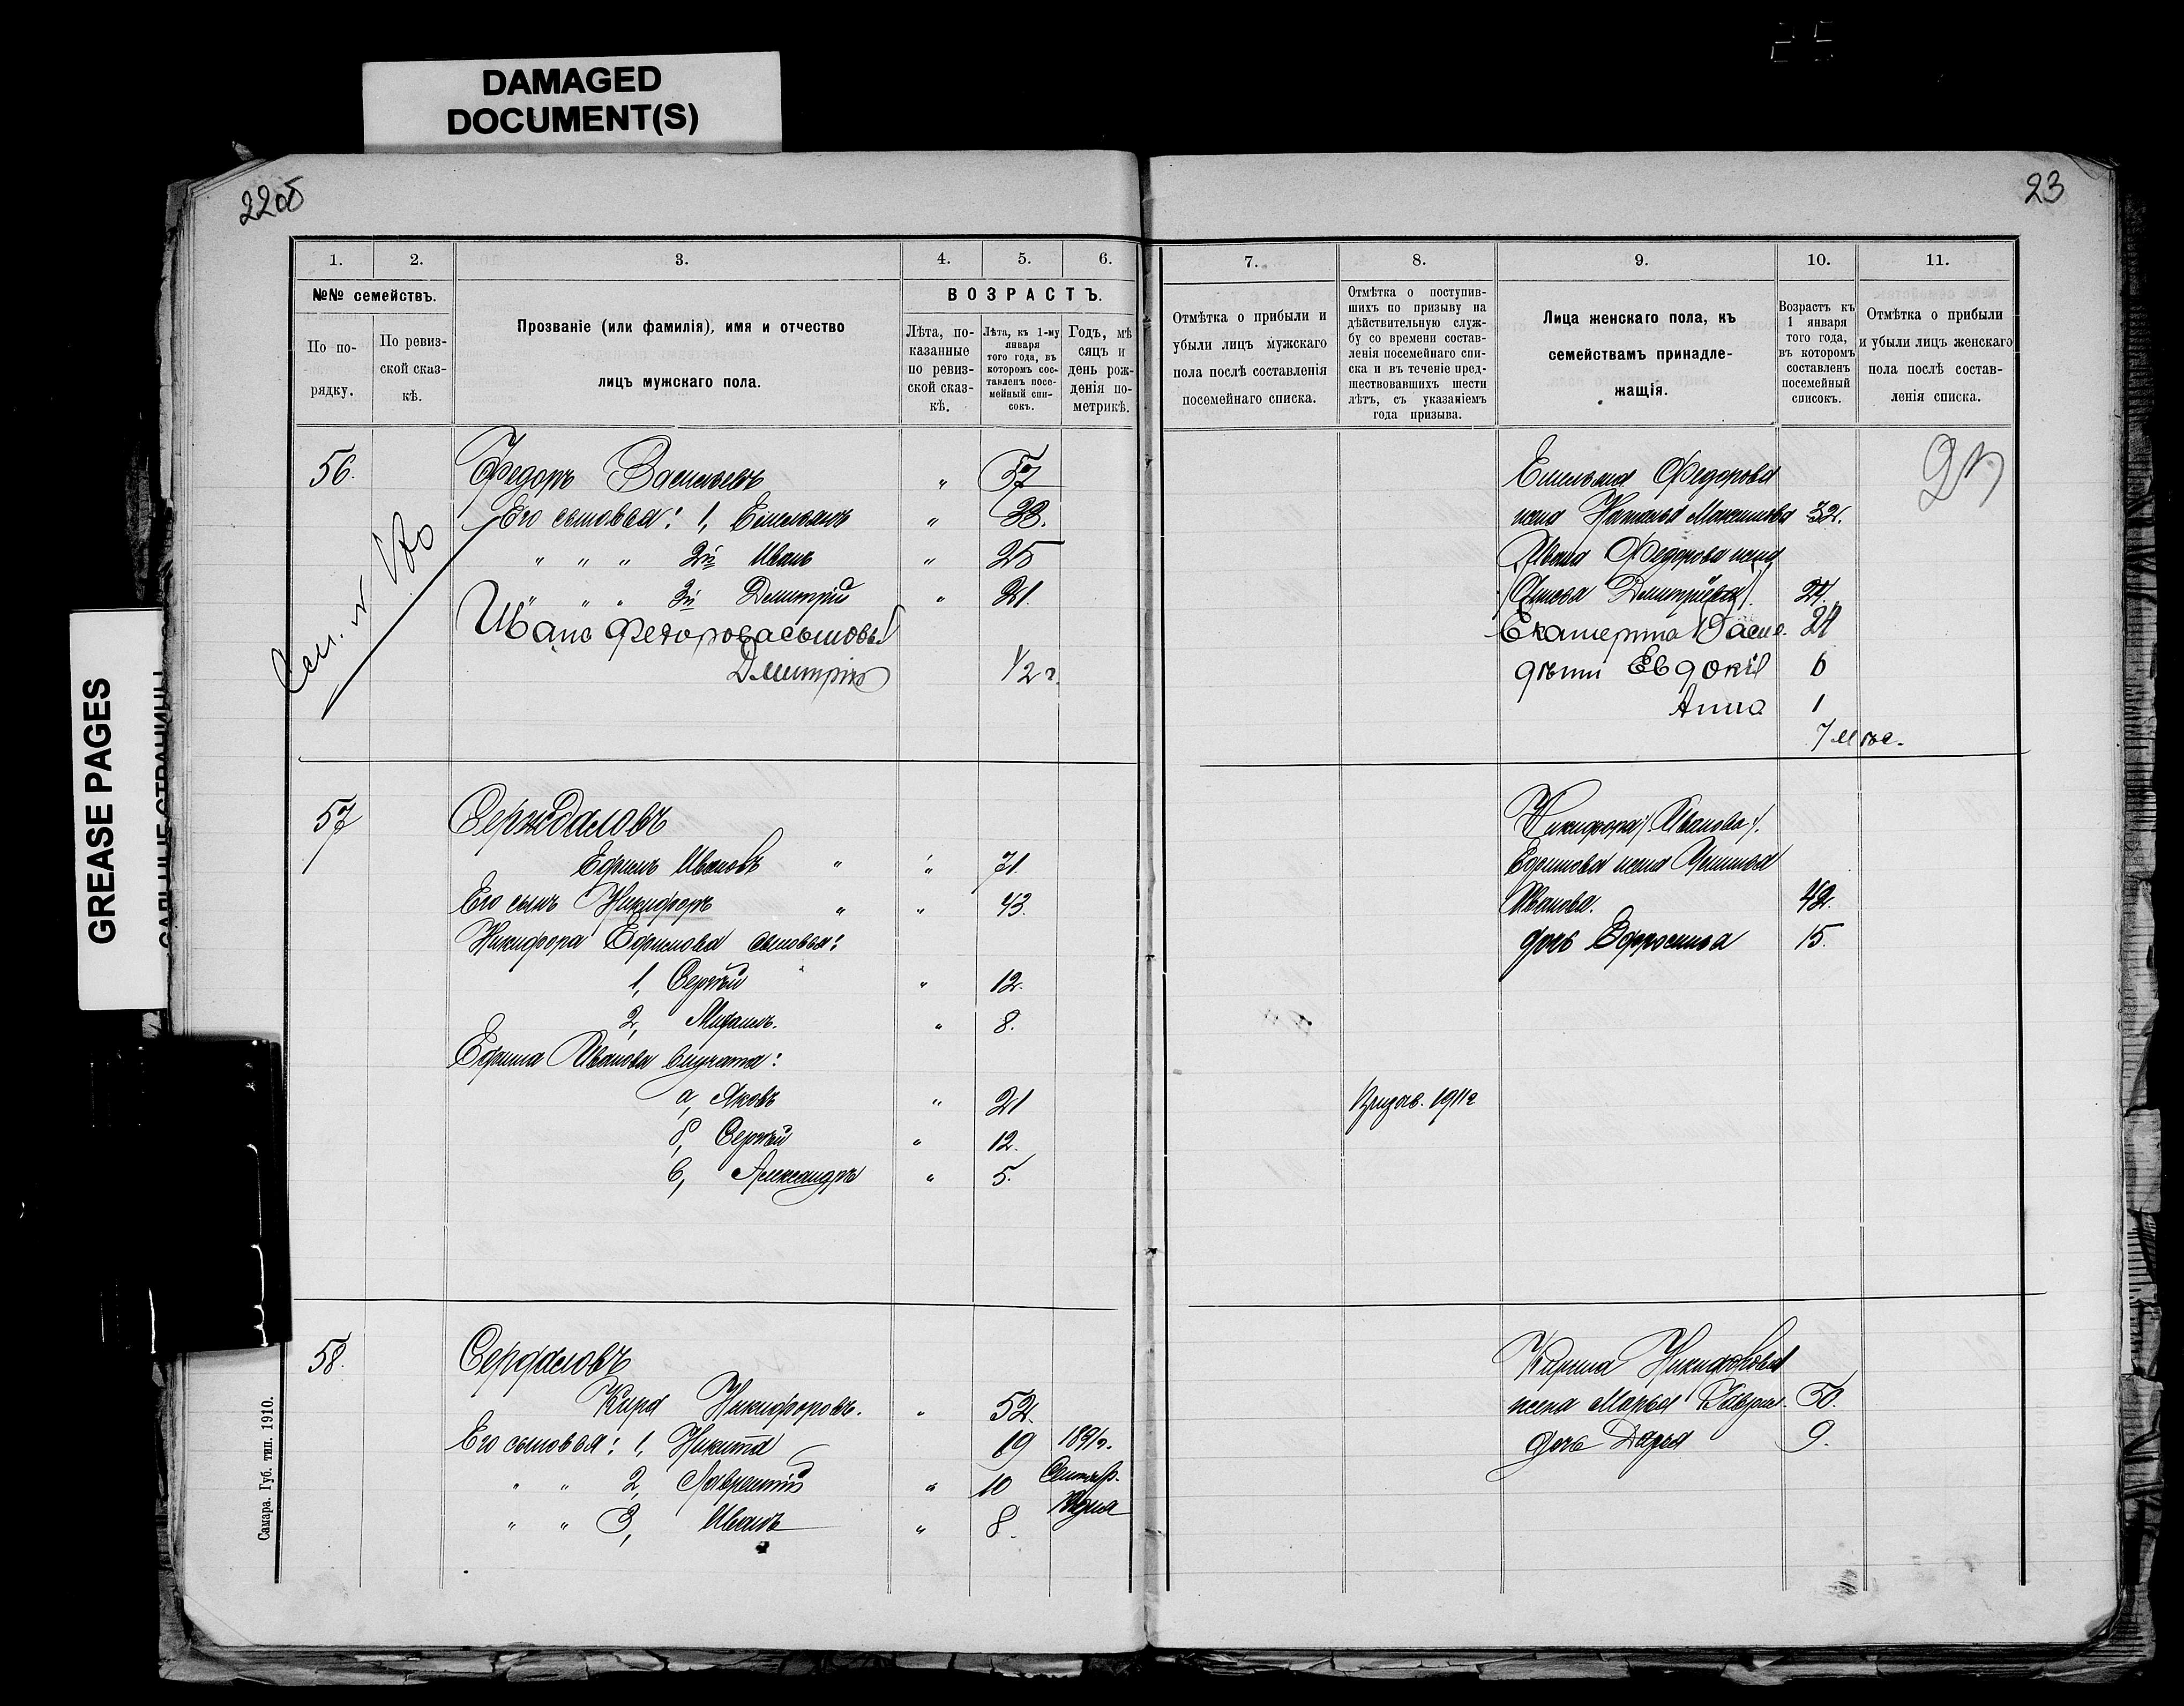 DAMAGED
DOCUMENT(S)
GREASE PAGES
22об
23
1.
2.
3.
4.
5.
6.
№№ семействъ.
По по-
рядку.
По ревиз-
ской сказ-
кѣ.
Прозваніе (или фамилія), имя и отчество
лицъ мужскаго пола.
ВОЗРАСТЪ.
Лѣта, по-
казанные
по ревиз-
ской сказ-
кѣ.
Лѣта, къ 1-му
января
того года, въ
которомъ сос-
тавленъ посе-
мейный спи-
сокъ.
Годъ, мѣ
сяцъ и
день рож-
денія по-
метрикѣ.
56.
Федоръ Васильевъ " 57
Его сыновья: 1, Емельянъ " 33.
" " " 2й Иванъ " 25
" " " 3й Дмитрій " 21.
Ивана Федорова сыновья
Дмитрій 1/2 г.
57
Сержdаловъ
Ефимъ Ивановъ " " 71.
Его сынъ Никифоръ " " 43.
Никифора Ефимова сыновья:
1, Сергѣй " 12.
2, Михаилъ. " 8.
Ефима Иванова внучата:
а, Яковъ " 21
б, Сергѣй " 12.
в, Александръ " 5.
58.
Сердаловъ
Кирa Никифоровъ. " 52.
Его сыновья: 1, Никита 19 1891г.
" " 2, Лаврентій " 10 Сентябр.
" " 3, Иванъ " 8.
Самара. Губ. тип. 1910.
7.
8.
9.
10.
11.
Отмѣтка о прибыли и
убыли лицъ мужскаго
пола послѣ составленія
посемейнаго списка.
Отмѣтка о поступив-
шихъ по призыву на
дѣйствительную служ-
бу со времени состав-
ленія посемейнаго спи-
ска и въ теченіе пред-
шествовавшихъ шести
лѣтъ, съ указаніемъ
года призыва.
Лица женскаго пола, къ
семействамъ принадле-
жащія.
Возрастъ къ
1 января
того года,
въ которомъ
составленъ
посемейный
списокъ.
Отмѣтка о прибыли
и убыли лицъ женскаго
пола послѣ состав-
ленія списка.
Емельяна Федорова
жена Наталья Максимова 32.
Ивана Федорова жена
Дмитріевна 24.
Екатерина Васил. 24
дѣти Евдокія 6
Анна 1
7 мѣс.
Никифора Иванова
Ефимова жена
Иванова. 42.
дочь Ефросинья 15.
Призыв. 1911г
Никифорова
жена Марья Гаврил. 50.
дочь Дарья 9.